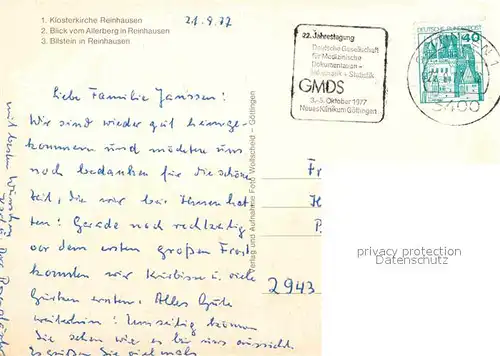 1. Klosterkirche Reinhausen
2. Blick vom Allerberg in Reinhausen
3. Bilstein in Reinhausen
21.9.77
22. Jahrestagung
Deutsche Gesellschaft
für Medizinische
Dokumentation -
Informatik + Statistik
GMDS
3.-5. Oktober 1977
Neues Klinikum Göttingen
DEUTSCHE BUNDESPOST
40
3400
Liebe Familie Janssen!
Wir sind wieder gut heimge-
kommen und möchten uns
noch bedanken für die schöne
Zeit, die wir bei Ihnen hat
ten! Gerade noch rechtzeitig
vor dem ersten großen Frost
konnten wir Kürbisse u. viele
Gurken ernten. Alles Gute
weiterhin! Umseitig können
Sie sehen wie es bei uns aussieht.
Es grüßen Sie vielmals
mit besten Wünschen
Verlag und Aufnahme Foto Wollscheid - Göttingen
Fr
H
P
2943
privacy protection
Datenschutz